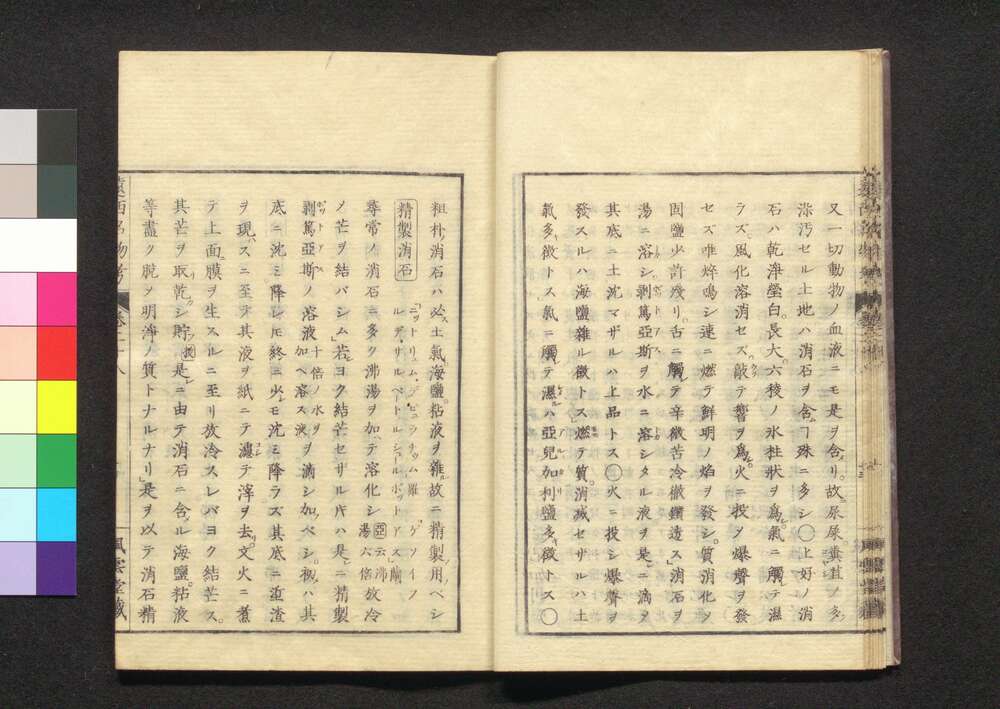 又一切動物ノ血液ニモ是ヲ含リ故ニ尿屎糞苴ノ多ク
浴汚セル土地ハ消石ヲ含ヿ殊ニ多シ〇上好ノ消
石ハ乾淨瑩白長大六稜ノ氷柱狀ヲ爲氣ニ觸テ濕
ラズ風化溶消セズ敲テ響ヲ爲火ニ投ノ爆聲ヲ發
セズ唯焠鳴シ速ニ燃テ鮮明ノ焰ヲ發シ質消化ノ
固鹽少許殘リ舌ニ觸テ辛微苦冷徹鑽透ス消石ヲ
湯ニ溶シ剥篤亞斯ヲ水ニ溶シタル液ヲ是ニ滴ヲ
其底ニ土沈マザルハ上品トス〇火ニ投シ爆聲ヲ
發スルハ海鹽雜ル徵トス燃テ質消滅セサルハ土
氣多徵トス氣ニ觸テ濕ハ亞兒加利鹽多徵トス〇
粗朴消石ハ必土氣海鹽粘液ヲ雜故ニ精製用ベシ
精製消石
尋常ノ消石ニ多ク沸湯ヲ加テ溶化シ 亞云沸湯六倍 放冷
ノ芒ヲ結バシム若ヨク結芒セザル片ハ是ニ精製
剥篤亞斯ノ溶液 十倍ノ水ヲ加ヘ溶ス液 ヲ滴シ加ベシ初ハ其
底ニ沈ミ降レ𪜈終ニ少モ沈ミ降ラズ其底ニ重渣
ヲ現スニ至ヲ其液ヲ紙ニテ濾テ滓ヲ去文火ニ煮
テ上面膜ヲ生スルニ至リ放冷スレバヨク結芒ス
其芒ヲ取乾シ貯 是ニ由テ消石ニ含ル海鹽粘液
等盡ク脱ノ明淨ノ質トナルナリ是ヲ以テ消石精
風雲堂藏